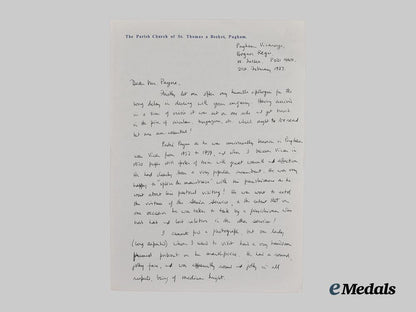 The Parish Church of St. Thomas a Becket, Pagham.
Pagham Vicarage,
Bognor Regis,
W. Sussex PO21
21st February 1987.
Dear Mr. Payne,
Firstly let me offer my humble apologies for the
long delay in dealing with your enquiry. Having arrived
in a time of crisis it was put on one side and got buried
in the pile of circulars, magazines, etc. which ought to be read
but are non-essential!
Payne as he was consistently known in Pagham
was Vicar from 1952 to 1959, and when I became Vicar in
people still spoke of him with great warmth and affection.
He had clearly been a very popular incumbent. He was very
happy to with the parishioners as he
went about his pastoral visiting! He was wont to extol
the virtues of the Service, to the extent that on
one occasion he was taken to task by a parishioner who
had had and lost relation in the other service!
I cannot find a photograph but one lady
(long departed) whom I used to visit had a very handsome
framed portrait on her mantelpiece. He had a round,
jolly face, and was apparently round and jolly in all
respects, being of medium height.
eMedals